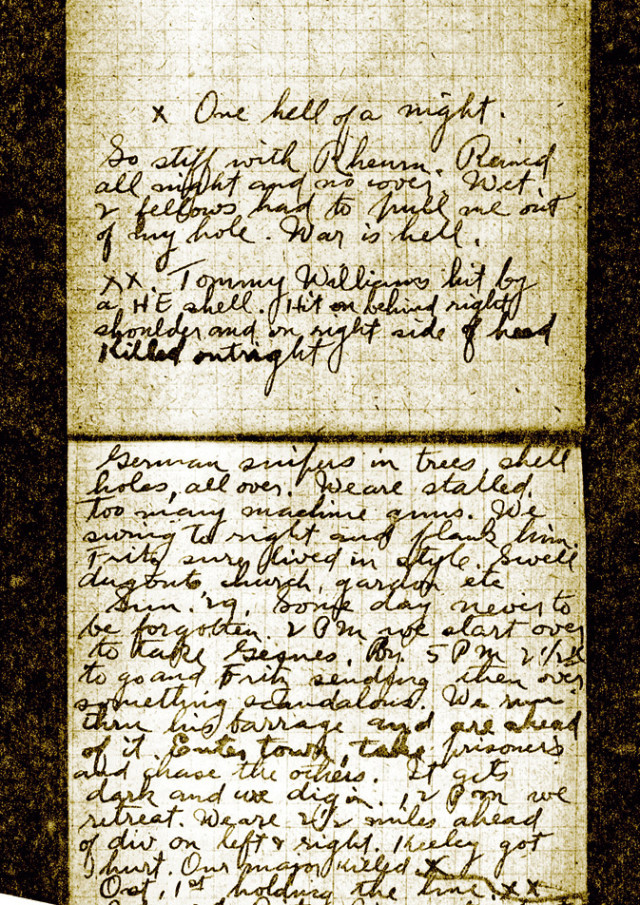 x One hell of a night.
So stiff with Rheum. Rained
all night and no cover. Wet
2 fellows had to pull me out
of my hole. War is hell.
xx. Tommy Williams hit by
a HE shell. Hit on behind right
shoulder and on right side of head
Killed outright
German snipers in trees, shell
holes, all over. We are stalled,
too many machine guns. We
swing to right and flank him.
Fritz sure lived in style. Swell
dugouts church, garden etc
Sun. 29. Some day never to
be forgotten. 2 PM we start over
to take Gesnes. By 5 PM 2 1/2 K
to go and Fritz sending them over
something scandalous. We run
thru his barrage and are ahead
of it Enter town, take prisoners
and chase the others. It gets
dark and we dig in. 12 PM we
retreat. We are 2 1/2 miles ahead
of div. on left & right. Keeley got
hurt. Our major killed. X
Oct. 1st holding the line. xx